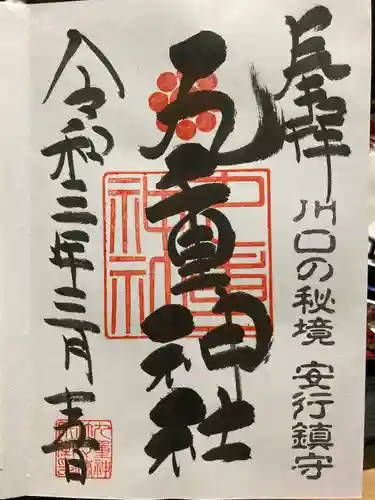 奉拝
川口の秘境 安行鎮守
九重神社
九重
神社
令和三年三月日